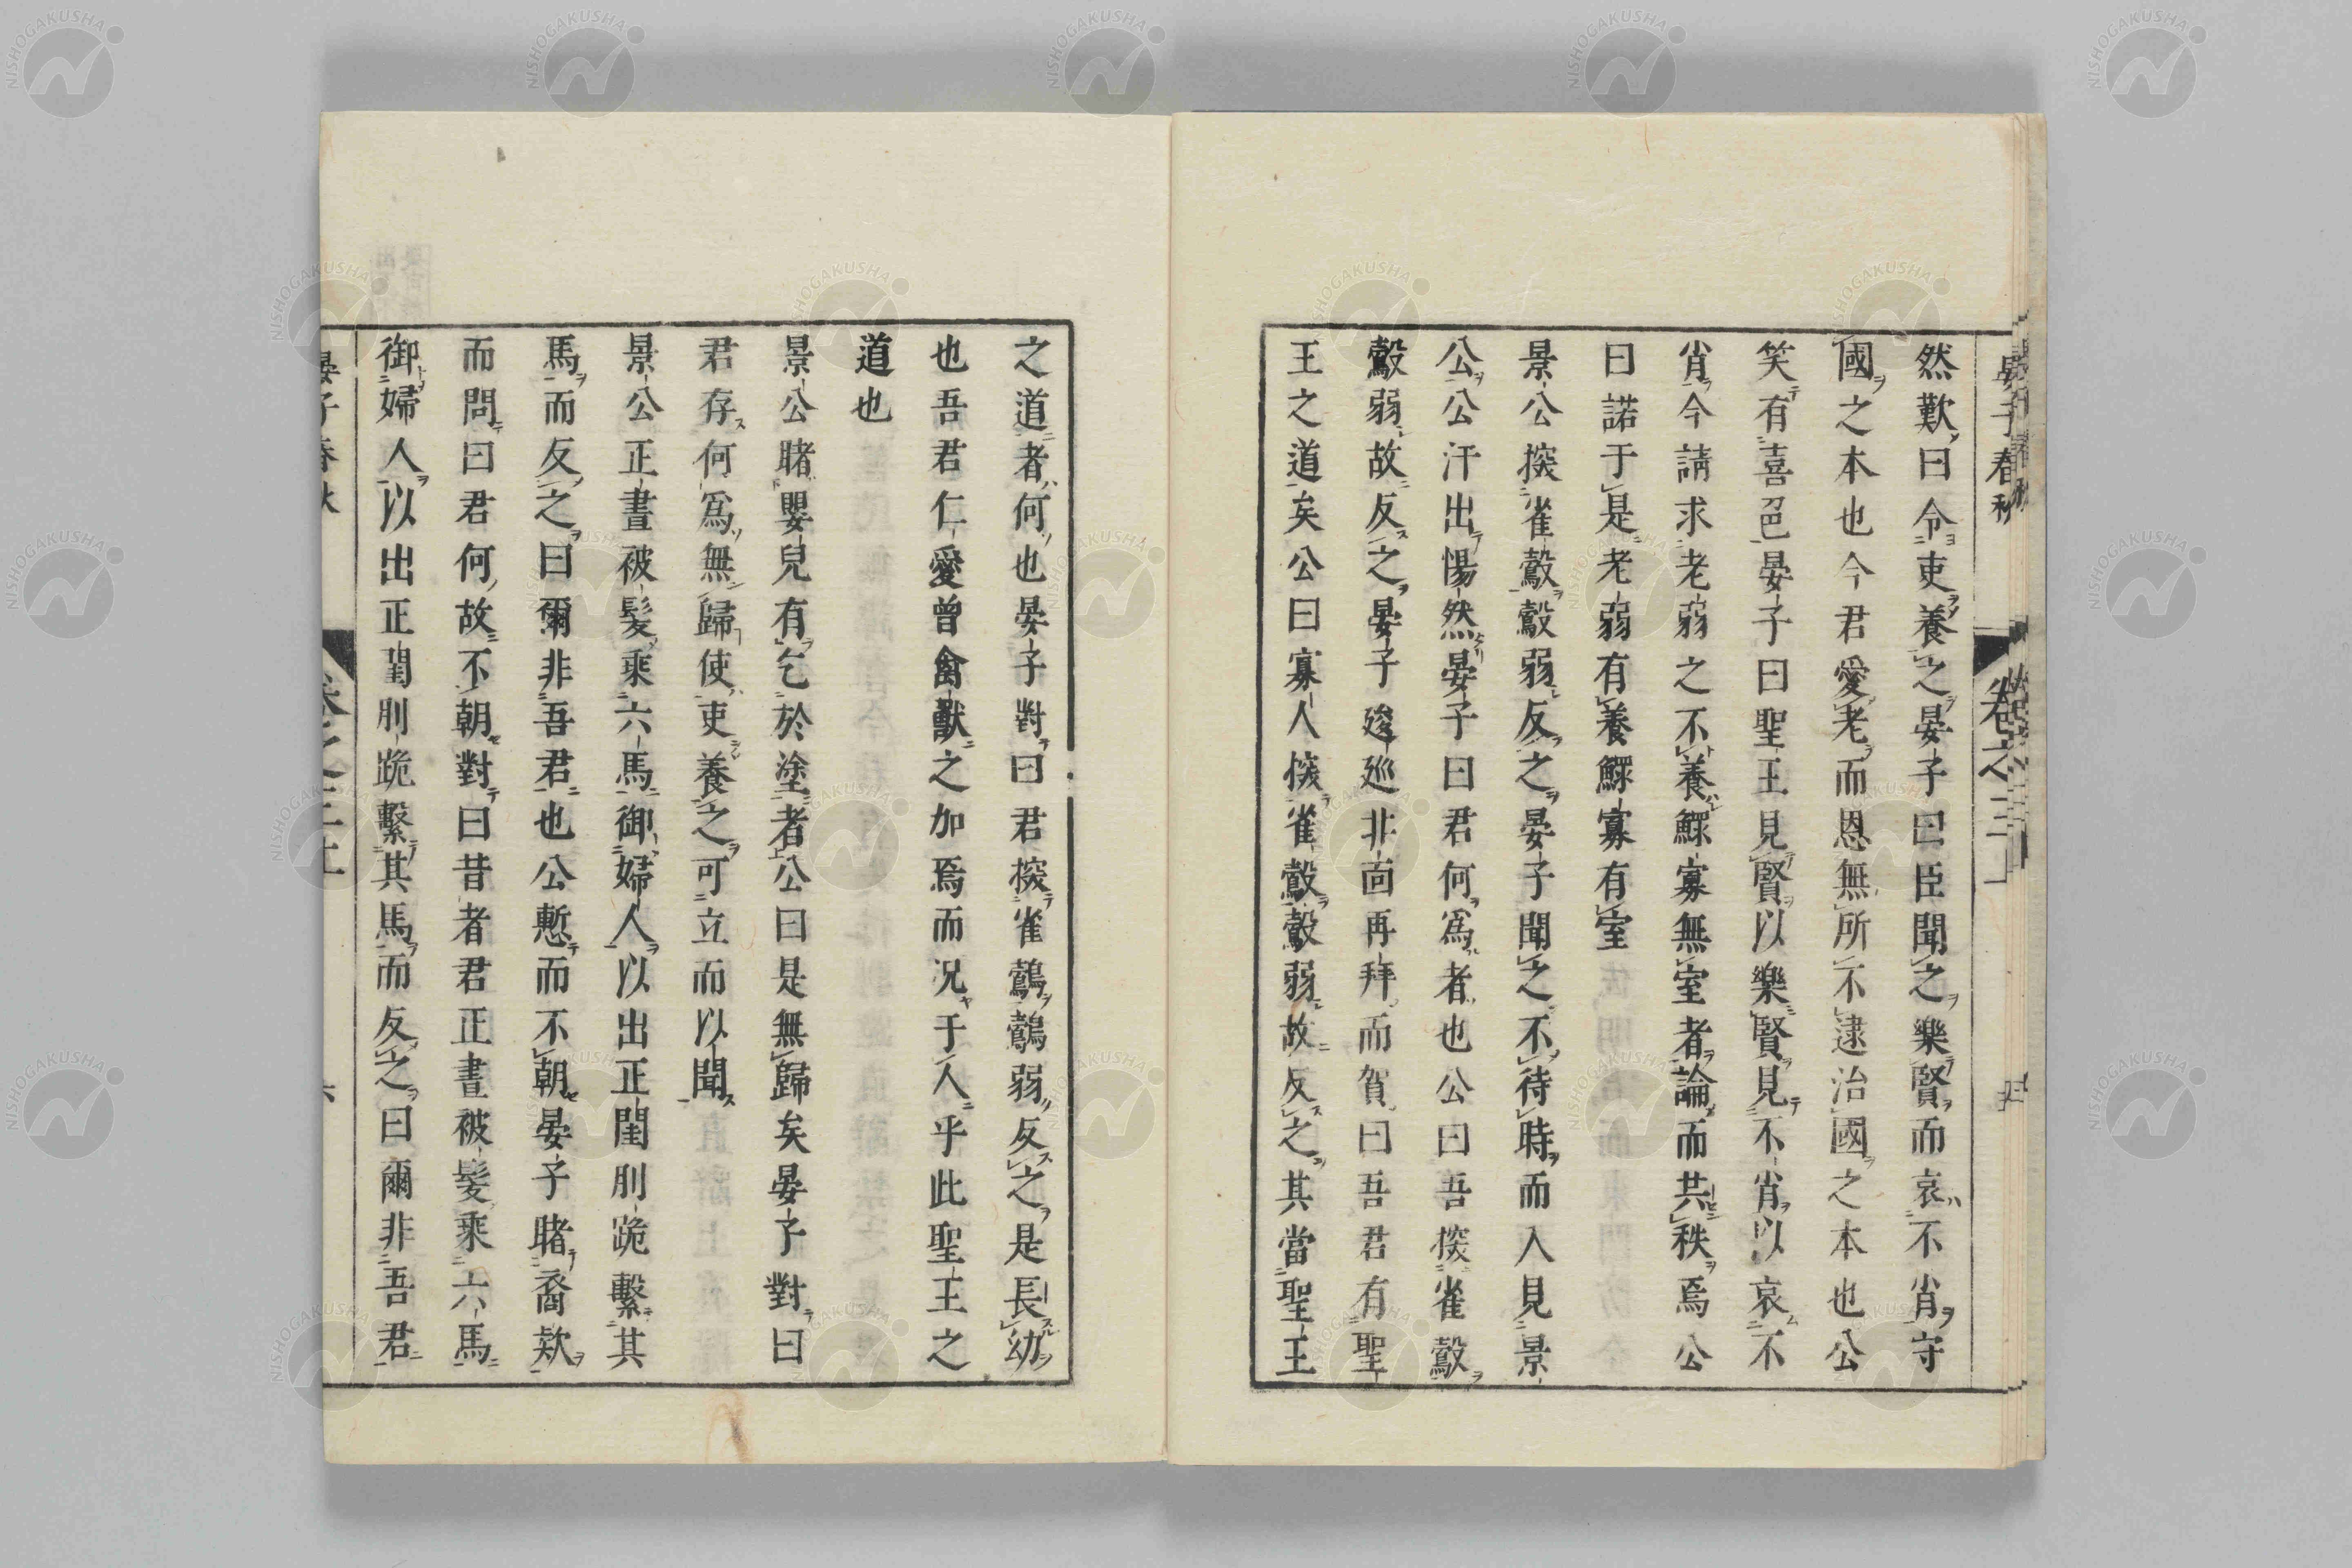 晏子春秋
卷之三上
五
然歎曰令吏養之晏子曰臣聞之樂賢而哀不肖守
國之本也今君愛老而恩無所不逮治國之本也公
笑有喜色晏子曰聖王見賢以樂賢見不肖以哀不
肖今請求老弱之不養鰥寡無室者論而共秩焉公
曰諾于是老弱有養鰥寡有室
景公探雀鷇鷇弱反之晏子聞之不待時而入見景
公公汗出惕然晏子曰君何爲者也公曰吾探雀鷇
鷇弱故反之晏子逡巡北面再拜而賀曰吾君有聖
王之道矣公曰寡人探雀鷇鷇弱故反之其當聖王
之道者何也晏子對曰君探雀鷇鷇弱反之是長幼
也吾君仁愛曾禽獸之加焉而況于人乎此聖王之
道也
景公睹嬰兒有乞於塗者公曰是無歸矣晏子對曰
君存何爲無歸使吏養之可立而以聞
景公正晝被髮乘六馬御婦人以出正閨刖跪擊其
馬而反之曰爾非吾君也公慙而不朝晏子睹裔欵
而問曰君何故不朝對曰昔者君正晝被髮乘六馬
御婦人以出正閨刖跪擊其馬而反之曰爾非吾君
晏子春秋
卷之三上
六
NISHOGAKUSHA